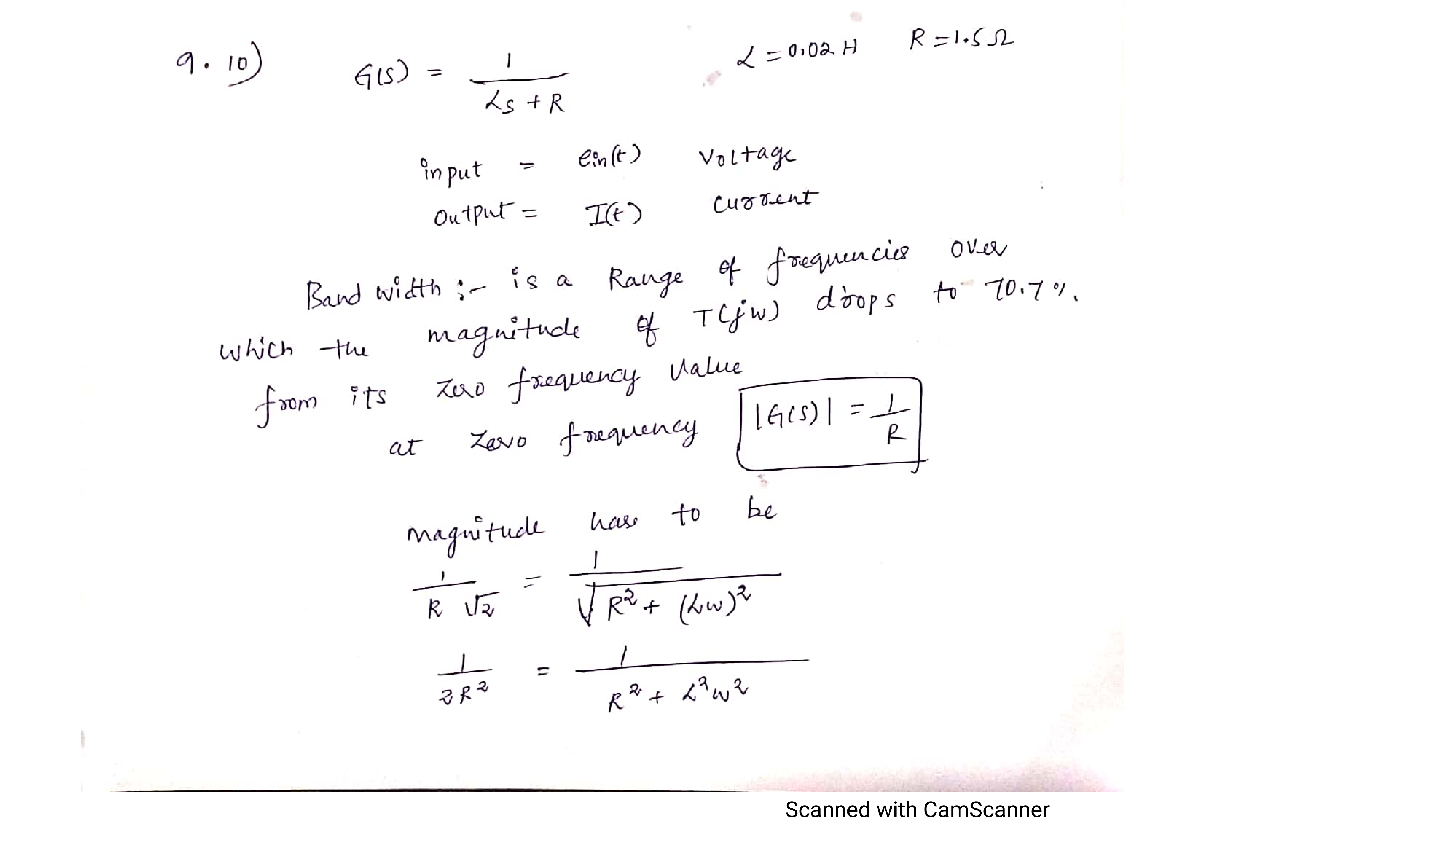 9.10) G(s) = 1 / (Ls + R) L = 0.02 H R = 1.5 Ω
input = ein(t) Voltage
output = I(t) current
Band width :- is a Range of frequencies over
which the magnitude of T(jw) drops to 70.7 %.
from its zero frequency value
at zero frequency |G(s)| = 1/R
magnitude has to be
1 / (R √2) = 1 / √(R² + (Lw)²)
1 / (2R²) = 1 / (R² + L²w²)
Scanned with CamScanner